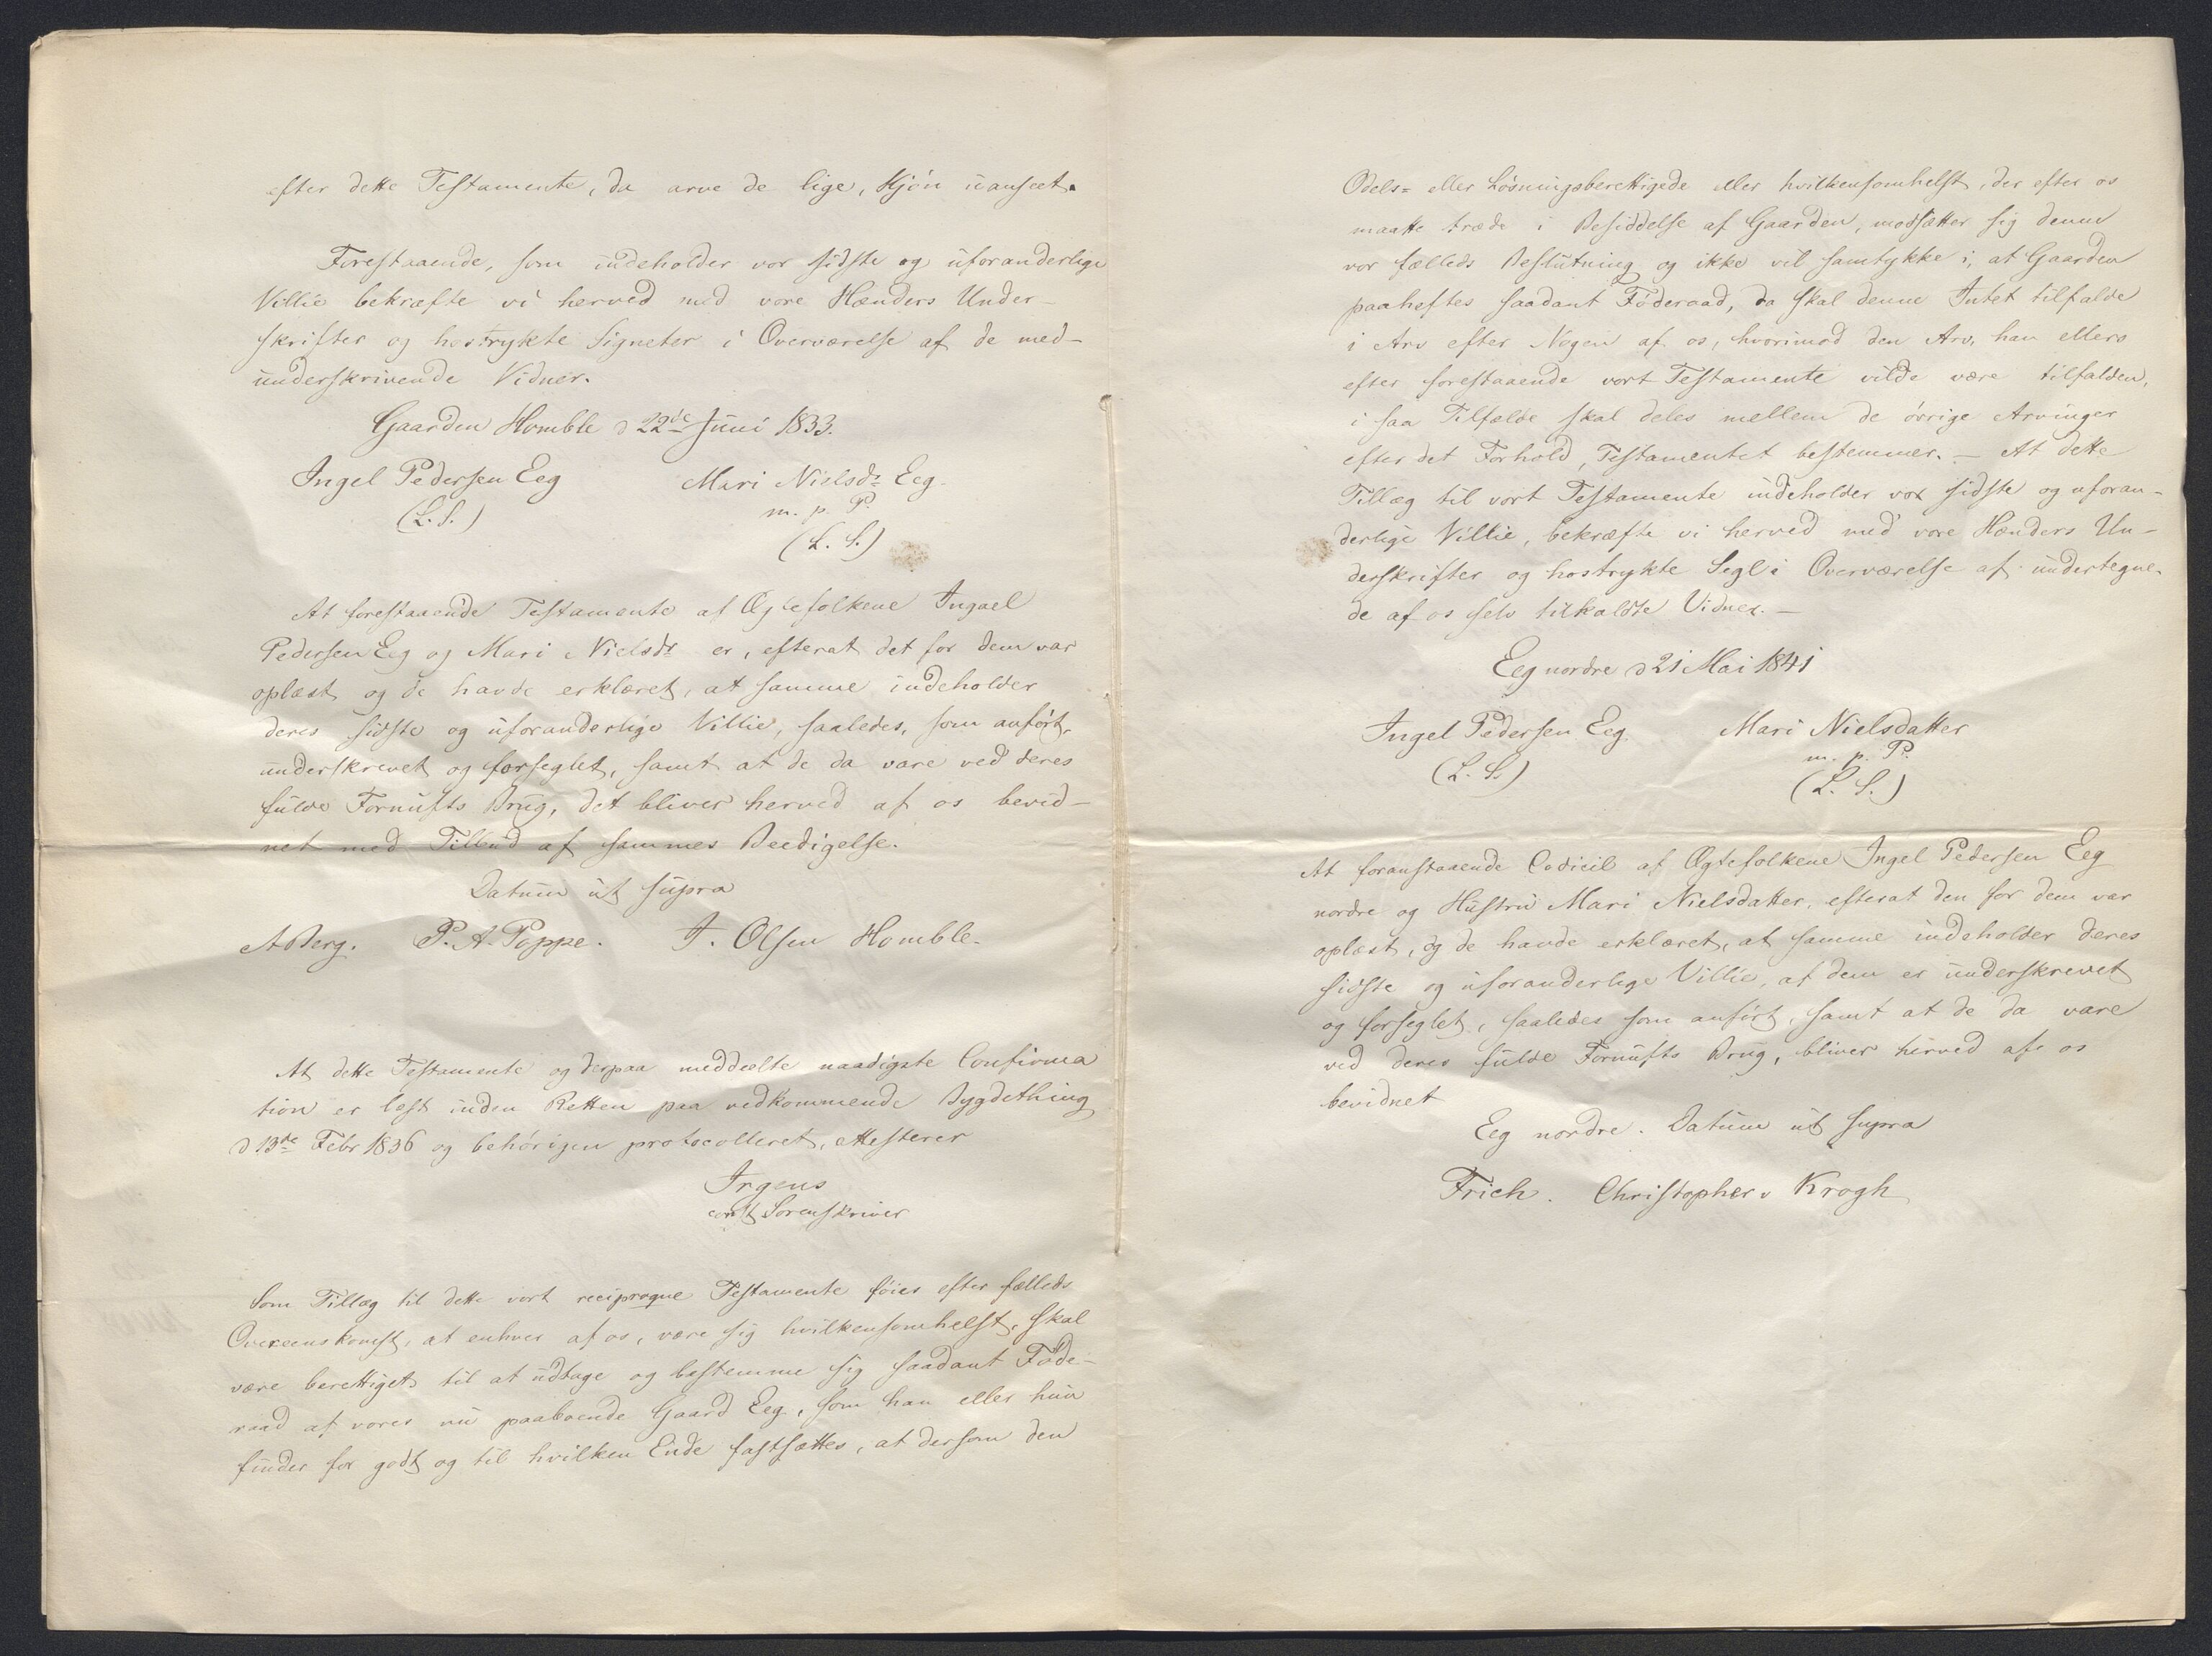 efter dette Testamente, da arve de lige, Kjön uanseet.
Forestaaende, som indeholder vor sidste og uforanderlige
Villie bekræfte vi herved med vore Hænders Under-
skrifter og hostrykte Signeter i Overværelse af de med-
underskrivende Vidner.
Gaarden Homble d 22de Juni 1833.
Ingel Pedersen Eeg Mari Nielsdr Eeg.
(L. S.) m. p. P.
(L. S.)
At forestaaende Testamente af Ægtefolkene Ingael
Pedersen Eeg og Mari Nielsdr er, efterat det for dem var
oplæst og de havde erklæret, at samme indeholder
deres sidste og uforanderlige Villie, saaledes, som anført,
underskrevet og forseglet, samt at de da vare ved deres
fulde Fornufts Brug, det bliver herved af os bevid-
net med Tilbud af sammes Beedigelse.
Datum ut supra
A Berg. P. A. Poppe. J. Olsen Homble.
At dette Testamente og derpaa meddeelte naadigste Confirma
tion er læst inden Retten paa vedkommende Bygdething
d 13de Febr 1836 og behörigen protocolleret, attesterer
Irgens
const Sorenskriver
Som Tillæg til dette vort reciproque Testamente föies efter fælleds
Overeenskomst, at enhver af os, være sig hvilkensomhelst, skal
være berettiget til at udtage og bestemme sig saadant Föde-
raad af vores nu paaboende Gaard Eeg, som han eller hun
finder for godt og til hvilken Ende fastsættes, at dersom den
Odels= eller Lösningsberettigede eller hvilkensomhelst, der efter os
maatte træde i Besiddelse af Gaarden, modsætter sig denne
vor fælleds Beslutning og ikke vil samtykke i, at Gaarden
paaheftes saadant Föderaad, da skal denne Intet tilfalde
i Arv efter Nogen af os, hvorimod den Arv, han ellers
efter forestaaende vort Testamente vilde være tilfalden,
i saa Tilfælde skal deles mellem de övrige Arvinger
efter det Forhold, Testamentet bestemmer. — At dette
Tillæg til vort Testamente indeholder vor sidste og uforan-
derlige Villie, bekræfte vi herved med vore Hænders Un-
derskrifter og hostrykte Segl i Overværelse af undertegne-
de af os selv tilkaldte Vidner. —
Eeg nordre d 21 Mai 1841
Ingel Pedersen Eeg. Mari Nielsdatter
(L. S.) m. p. P.
(L. S.)
At foranstaaende Codicil af Ægtefolkene Ingel Pedersen Eeg
nordre og Hustru Mari Nielsdatter, efterat den for dem var
oplæst, og de havde erklæret, at samme indeholder deres
sidste og uforanderlige Villie, af dem er underskrevet
og forseglet, saaledes som anfört, samt at de da vare
ved deres fulde Fornufts Brug, bliver herved af os
bevidnet
Eeg nordre. Datum ut supra
Frich. Christopher v Krogh